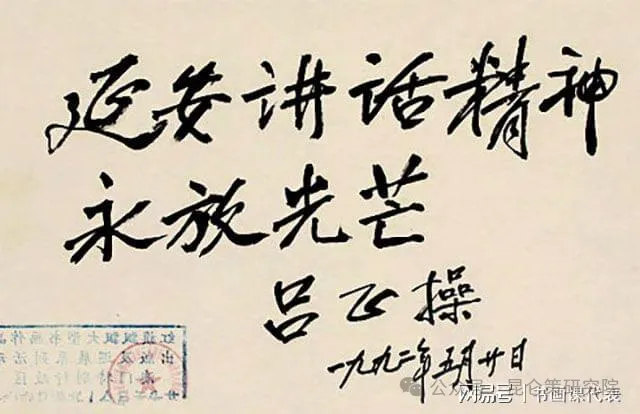 延安讲话精神
永放光芒
吕正操
一九九二年五月廿日
公众号·昆仑策研究院
网易号 | 书画课代表